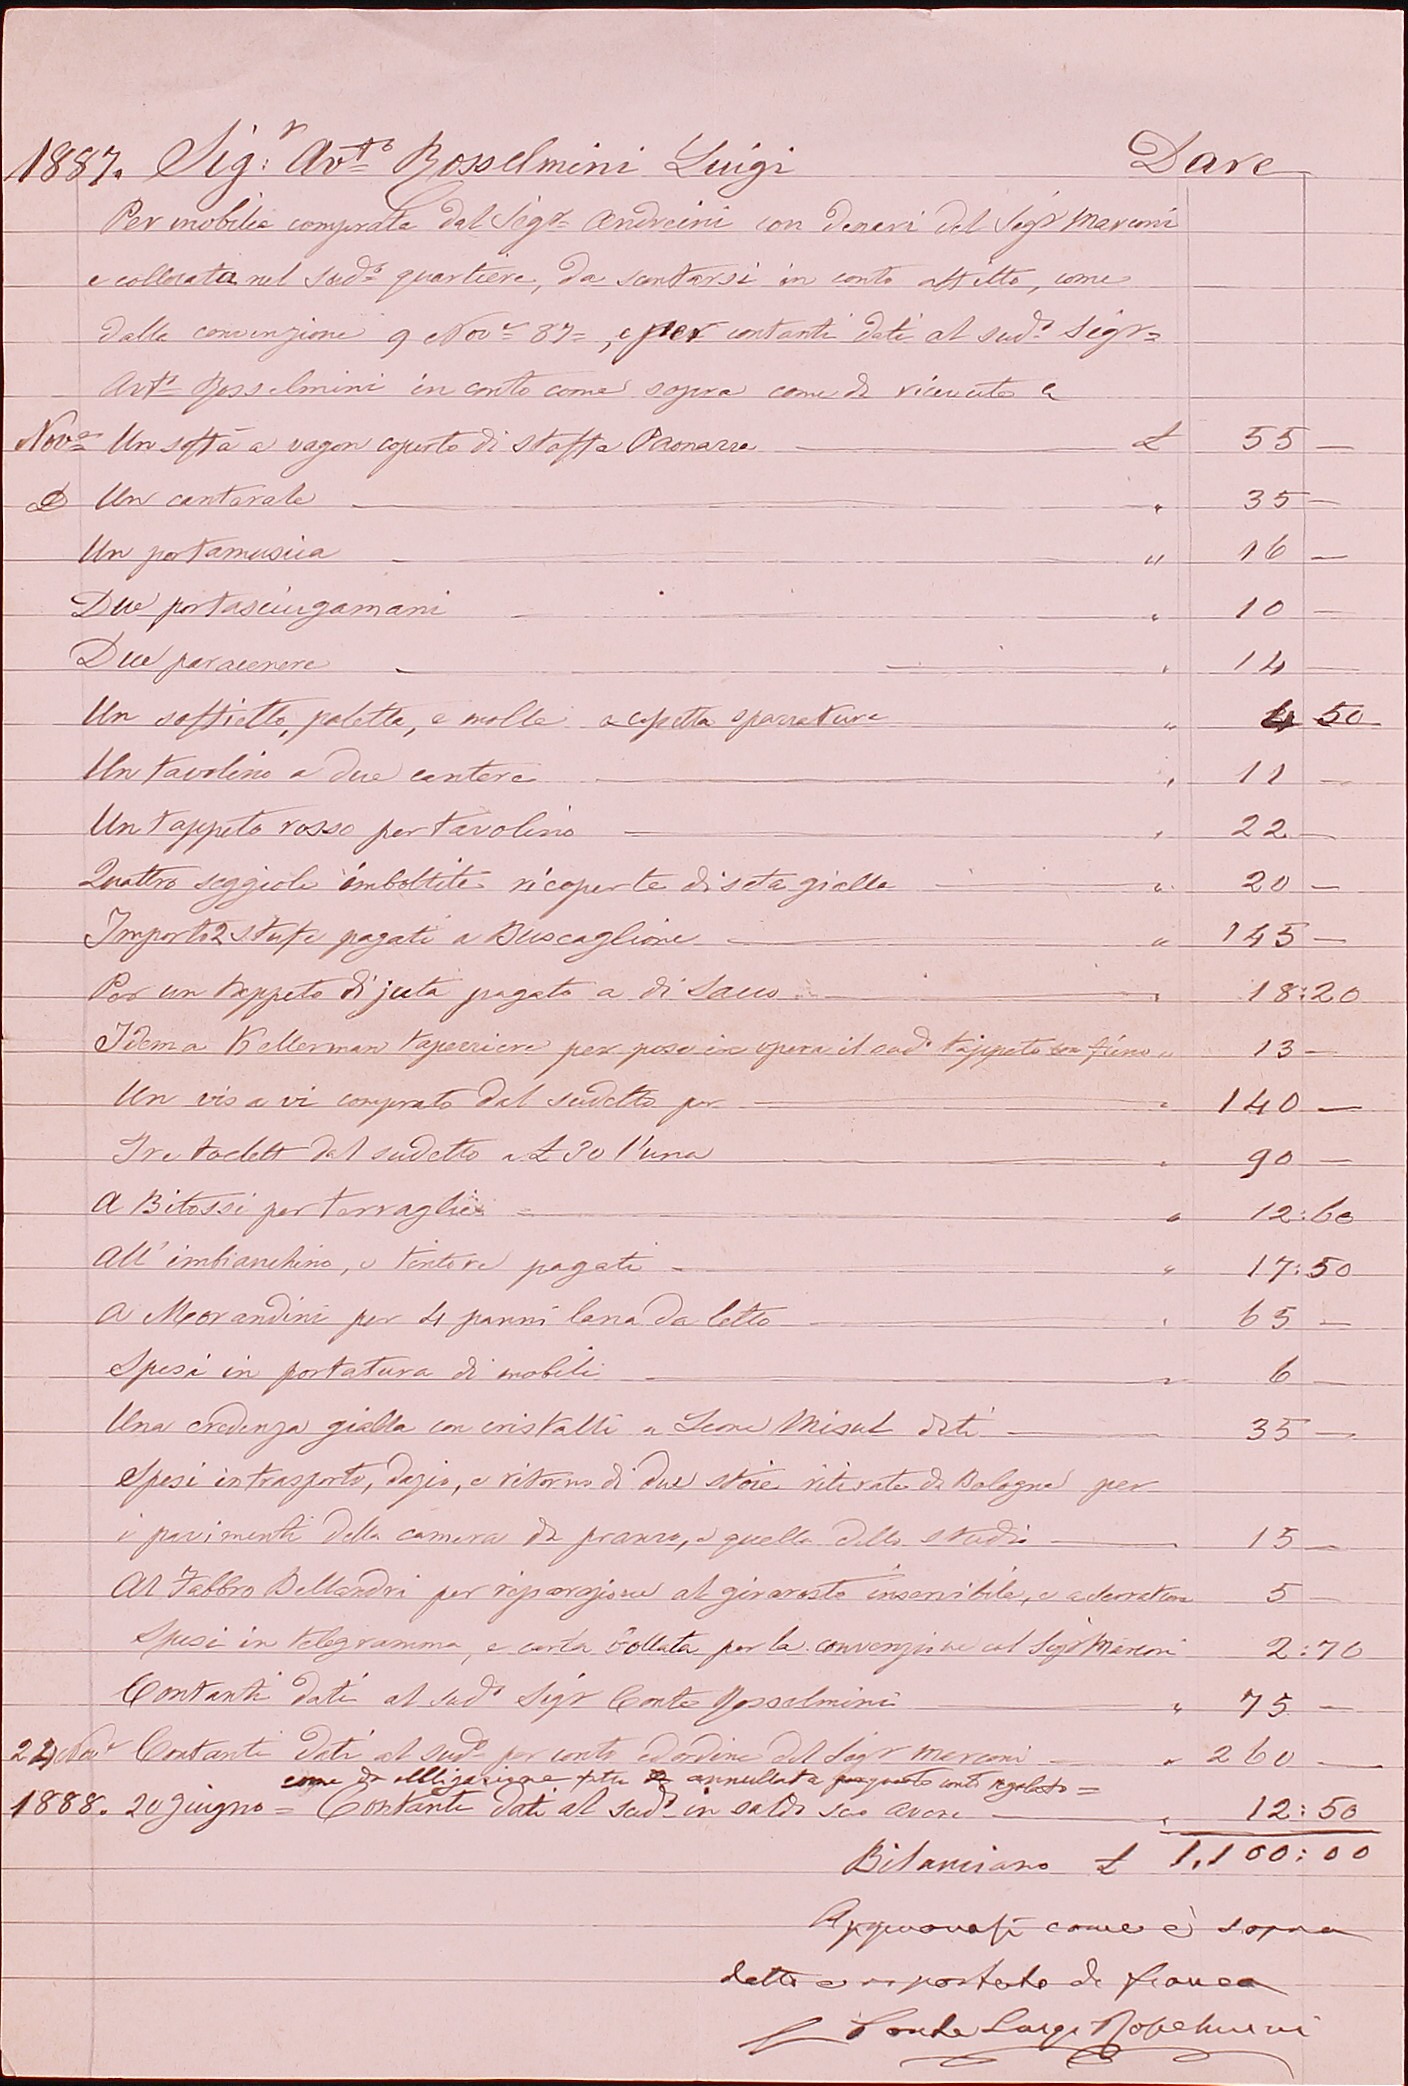 1887. Sig:r Avto Rosselmini Luigi Dare
Per mobilia comprata dal Sigr Andreini con denari del Sigr Marconi
e collocata nel sudo quartiere, da scontarsi in conto affitto, come
dalla convenzione 9 Nove 87=, e per contanti dati al sudo Sigr=
Avto Rosselmini in conto come sopra come da ricevute a
Nove Un soffà a vagon coperto di stoffa Paonazza £ 55 —
D Un canterale " 35 —
Un portamusica " 16 —
Due portasciugamani " 10 —
Due paracenere " 14 —
Un soffietto, paletta, e molle e spazzatura " 4 50
Un tavolino a due cantere " 11 —
Un tappeto rosso per tavolino " 22 —
Quattro seggiole imbottite ricoperte di seta gialla " 20 —
Importo 2 stufe pagate a Buscaglione " 145 —
Per un tappeto di juta pagato a di Sacco " 18:20
Idem a Kellerman tapezziere per posa in opera il sudo tappeto con fieno " 13 —
Un vis a vi comprato dal sudetto per " 140 —
Tre toelett dal sudetto a £ 30 l'una " 90 —
A Bitossi per terraglie " 12:60
All' imbianchino, e tintore pagati " 17:50
A Morandini per 4 panni lana da letto " 65 —
Spesi in portatura di mobili " 6 —
Una credenza gialla con cristalli a Leone Misul dati 35 —
Spesi in trasporto, dazio, e ritorno di due stoie ritirate da Bologna per
i pavimenti della camera da pranzo, e quella dello studio 15 —
Al Fabbro Bellandri per riparazione al girarosto inservibile, e 5 —
Spesi in telegramma, e carta bollata per la convenzione col Sigr Marconi 2:70
Contanti dati al sudo Sigr Conte Rosselmini " 75 —
24 Nove Contanti dati al sudo per conto ed ordine del Sigr Marconi " 260 —
come da obbligazione annullata conto regolato =
1888. 20 giugno = Contanti dati al sudo in saldo suo avere " 12:50
Bilanciano £ 1,100:00
Approvasi come è sopra
detto e riportato di fianco
Conte Luigi Rosselmini